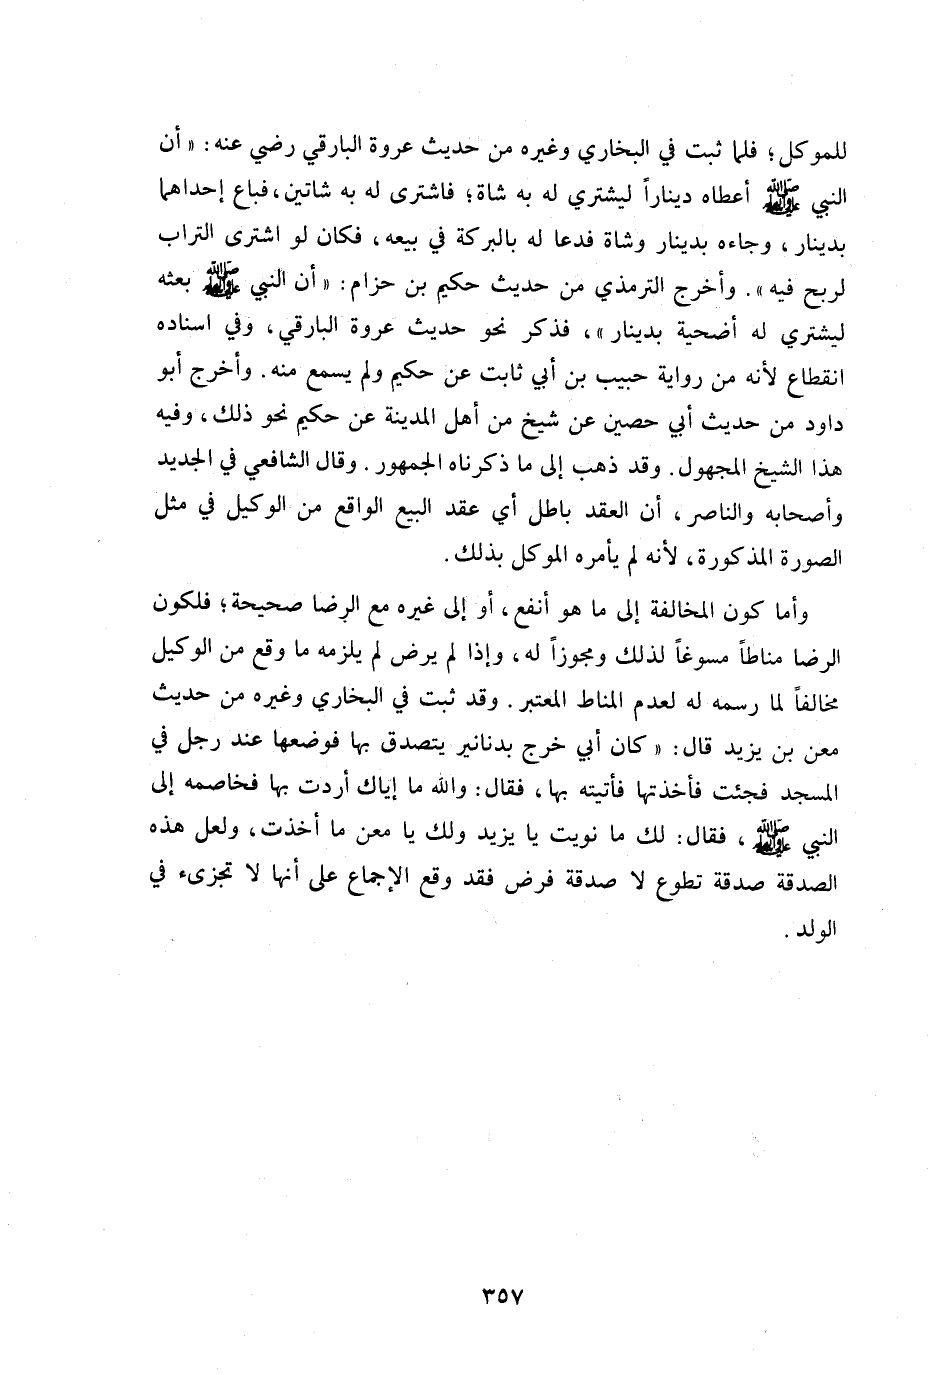 للموكل؛ فلما ثبت في البخاري وغيره من حديث عروة البارقي رضي عنه: « أن
النبي ﷺ أعطاه ديناراً ليشتري له به شاة؛ فاشترى له به شاتين، فباع إحداهما
بدينار، وجاءه بدينار وشاة فدعا له بالبركة في بيعه، فكان لو اشترى التراب
لربح فيه ». وأخرج الترمذي من حديث حكيم بن حزام: « أن النبي ﷺ بعثه
ليشتري له أضحية بدينار »، فذكر نحو حديث عروة البارقي، وفي اسناده
انقطاع لأنه من رواية حبيب بن أبي ثابت عن حكيم ولم يسمع منه. وأخرج أبو
داود من حديث أبي حصين عن شيخ من أهل المدينة عن حكيم نحو ذلك، وفيه
هذا الشيخ المجهول. وقد ذهب إلى ما ذكرناه الجمهور. وقال الشافعي في الجديد
وأصحابه والناصر، أن العقد باطل أي عقد البيع الواقع من الوكيل في مثل
الصورة المذكورة، لأنه لم يأمره الموكل بذلك.
وأما كون المخالفة إلى ما هو أنفع، أو إلى غيره مع الرضا صحيحة؛ فلكون
الرضا مناطاً مسوغاً لذلك ومجوزاً له، وإذا لم يرض لم يلزمه ما وقع من الوكيل
مخالفاً لما رسمه له لعدم المناط المعتبر. وقد ثبت في البخاري وغيره من حديث
معن بن يزيد قال: « كان أبي خرج بدنانير يتصدق بها فوضعها عند رجل في
المسجد فجئت فأخذتها فأتيته بها، فقال: والله ما إياك أردت بها فخاصمه إلى
النبي ﷺ، فقال: لك ما نويت يا يزيد ولك يا معن ما أخذت، ولعل هذه
الصدقة صدقة تطوع لا صدقة فرض فقد وقع الإجماع على أنها لا تجزىء في
الولد.
٣٥٧